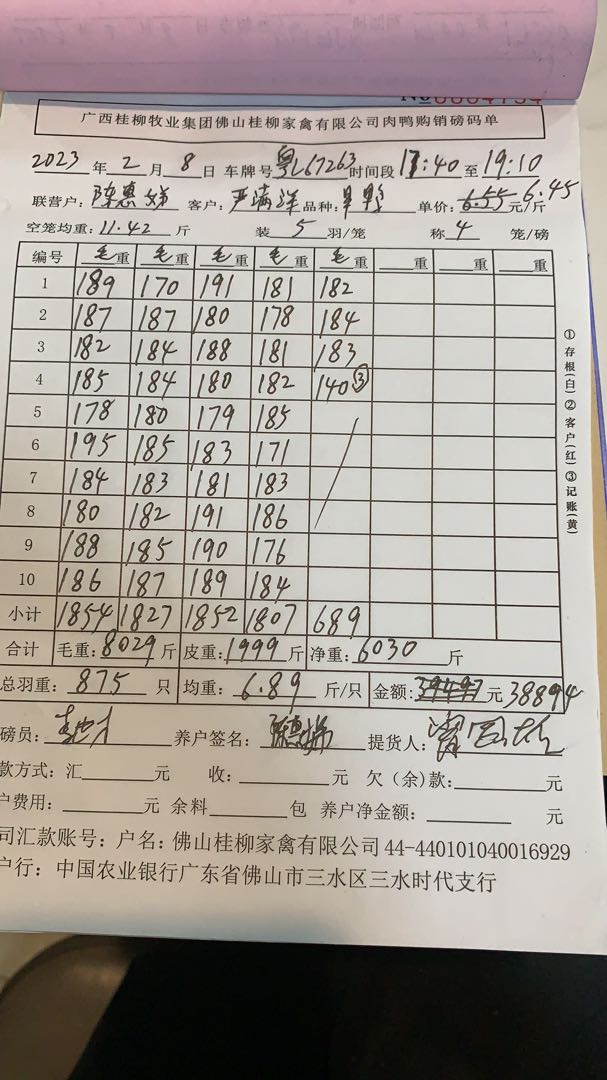 No 0004734
广西桂柳牧业集团佛山桂柳家禽有限公司肉鸭购销磅码单
2023 年 2 月 8 日 车牌号 粤L67263 时间段 17:40 至 19:10
联营户: 陈惠娣 客户: 严满洋 品种: 单价: 6.55 元/斤 6.45
空笼均重: 11.42 斤 装 5 羽/笼 称 4 笼/磅
编号 毛重 毛重 毛重 毛重 毛重 重 重 重
1 189 170 191 181 182
2 187 187 180 178 184
3 182 184 188 181 183
4 185 184 180 182 140 ③
5 178 180 179 185
6 195 185 183 171
7 184 183 181 183
8 180 182 191 186
9 188 185 190 176
10 186 187 189 184
小计 1854 1827 1852 1807 689
合计 毛重: 8029 斤 皮重: 1999 斤 净重: 6030 斤
总羽重: 875 只 均重: 6.89 斤/只 金额: 元 38894
磅员: 养户签名: 陈惠娣 提货人:
款方式: 汇 元 收: 元 欠(余)款: 元
户费用: 元 余料 包 养户净金额: 元
司汇款账号: 户名: 佛山桂柳家禽有限公司 44-440101040016929
户行: 中国农业银行广东省佛山市三水区三水时代支行
①存根(白)②客户(红)③记账(黄)